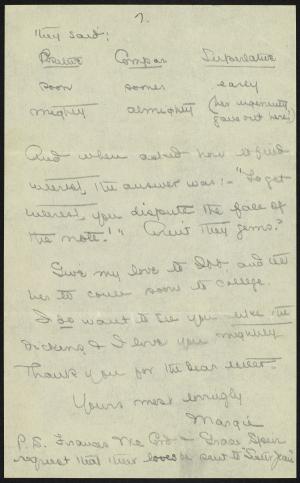 7.
They said:
Positive Compar Superlative
soon sooner early
mighty almighty (her ingenuity
gave out here)
And when asked how to find
interest, the answer was: - "To get
interest, you dispute the face of
the note!" Aren't they gems?
Give my love to Bob, and tell
her to come soon to college.
I do want to see you like the
dickens & I love you mightily
Thank you for the dear letter.
Yours most
Margie
P.S. Frances Mc &
request that their loves be sent to "Sister Jean"